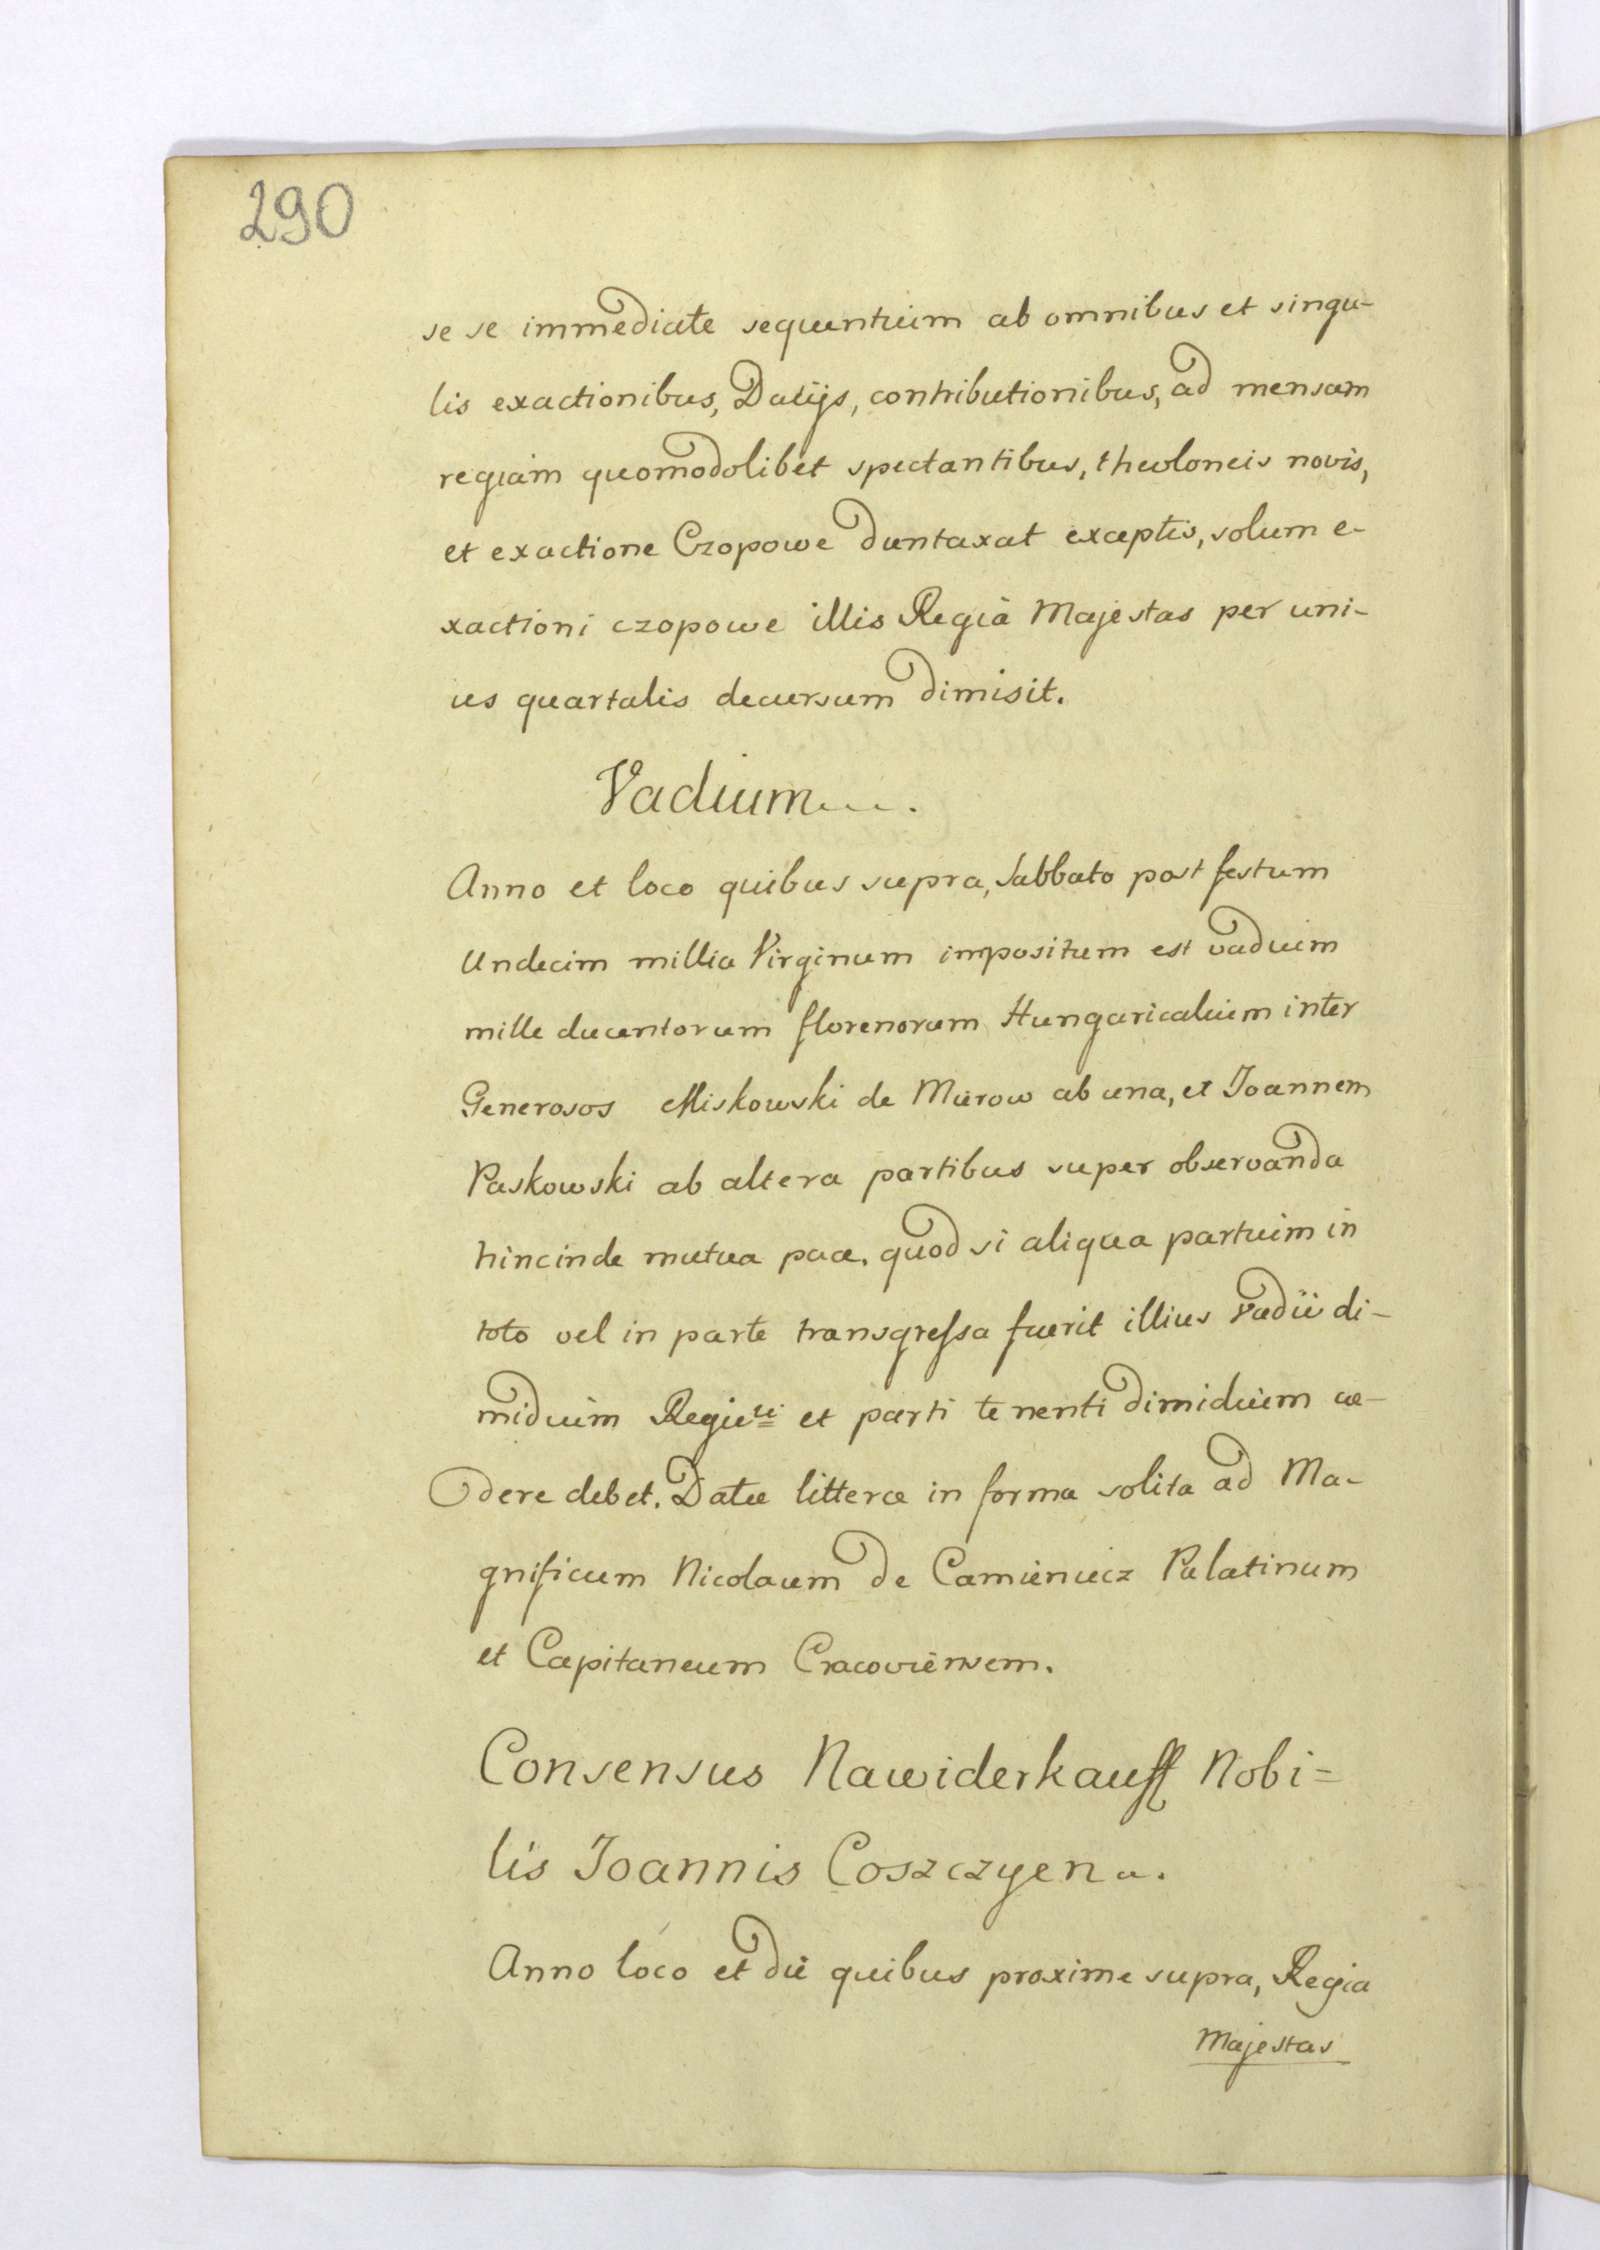 290
se se immediate sequentium ab omnibus et singu-
lis exactionibus, Datijs, contributionibus, ad mensam
regiam quomodolibet spectantibus, theoloneis novis,
et exactione Czopowe duntaxat exceptis, solum e-
xactioni czopowe illis Regia Majestas per uni-
us quartalis decursum dimisit.
Vadium....
Anno et loco quibus supra, Sabbato post festum
Undecim millia Virginum impositum est vadium
mille ducentorum florenorum Hungaricalium inter
Generosos Miskowski de Mirow ab una, et Joannem
Paskowski ab altera partibus super observanda
hincinde mutua pace. quod si aliqua partium in
toto vel in parte transgressa fuerit illius vadii di-
midium Regie et parti tenenti dimidium ce-
dere debet. Datæ litteræ in forma solita ad Ma-
gnificum Nicolaum de Camieniecz Palatinum
et Capitaneum Cracoviensem.
Consensus Nawiderkauff Nobi=
lis Joannis Coszczyen..
Anno loco et die quibus proxime supra, Regia
Majestas